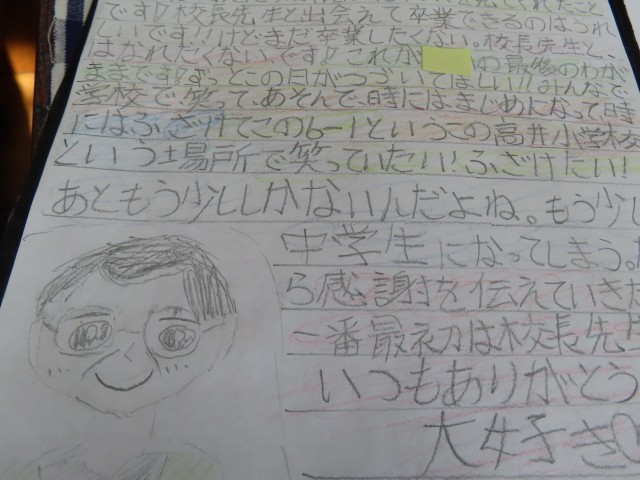 てくれたこと
です!校長先生と出会えて卒業できるのはうれ
しいです!!けどまだ卒業したくない。校長先生と、
はなれたくないです!これが の最後のわが
ままです!ずっとこの日がつづいてほしい!!みんなで、
学校で、笑って、あそんで、時にはまじめになって、時
にはふざけてこの6-1というこの高井小学校
という場所で笑っていたい!ふざけたい!
あともう少ししかないんだよね。もう少し
中学生になってしまう。
ら感謝を伝えていきた
一番最初は校長先
いつもありがとう
大好き♡